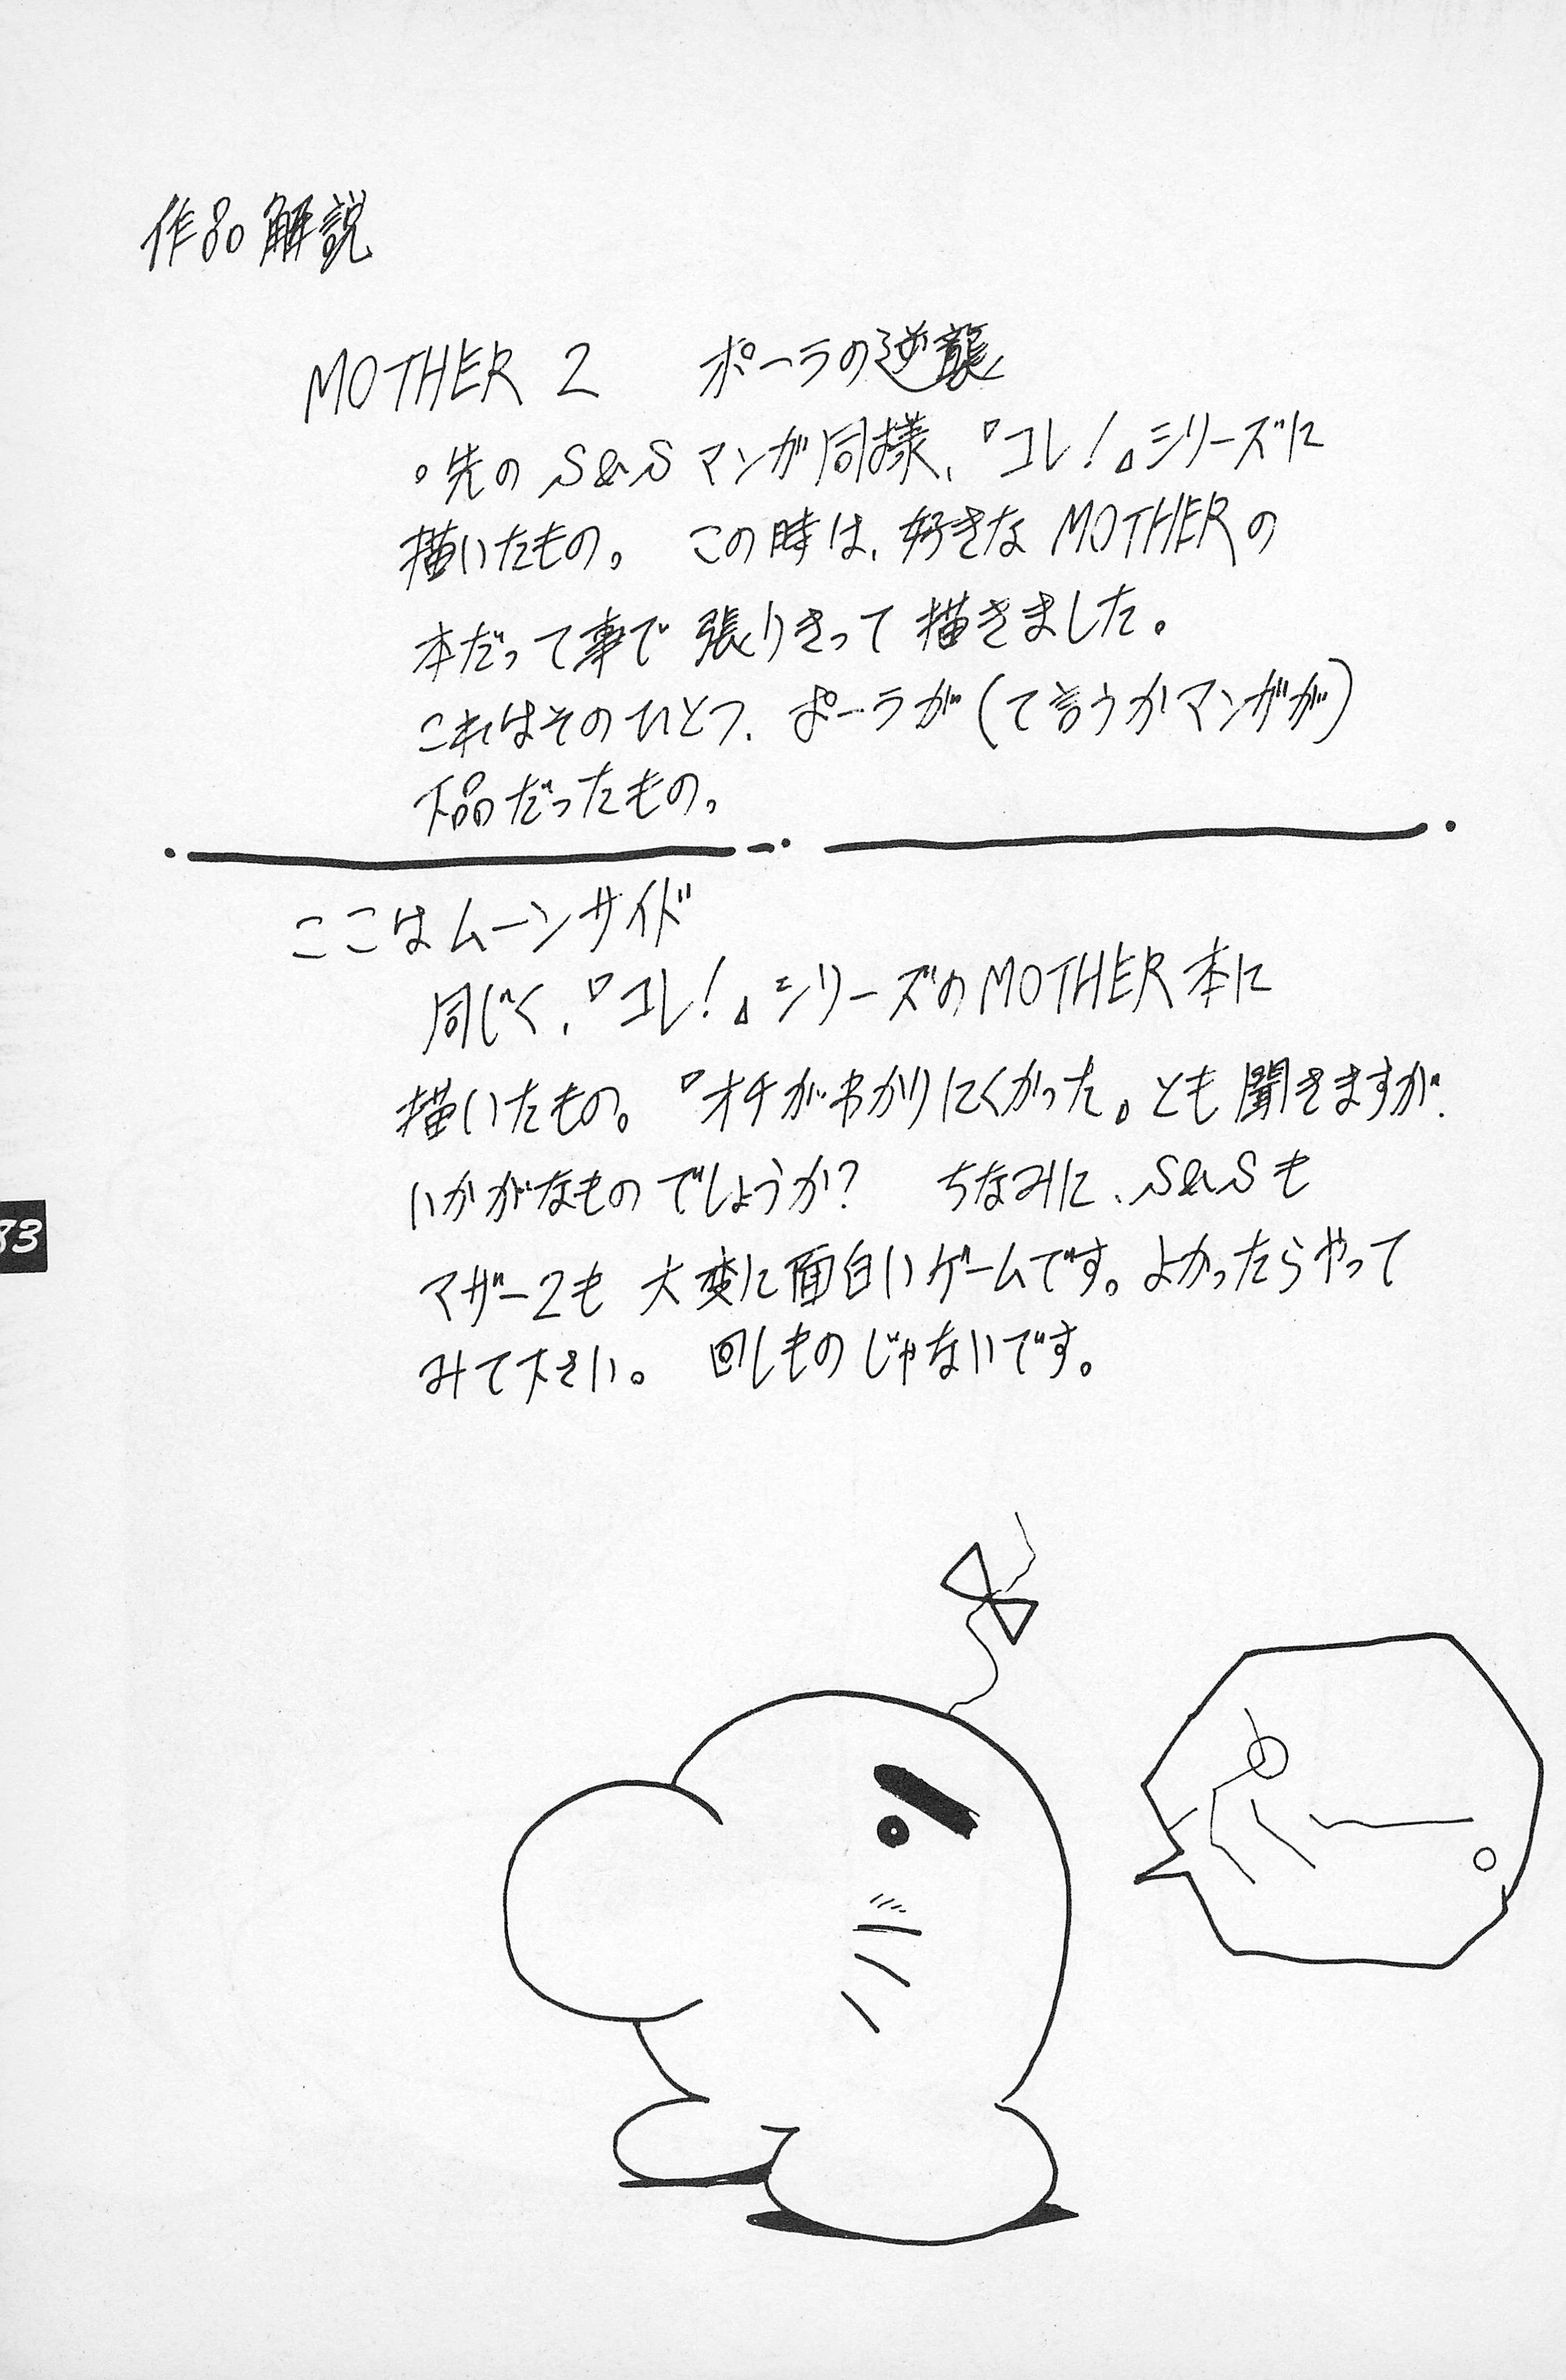 作品解説
MOTHER 2　ポーラの逆襲
。先の S&S マンガ同様、『コレ！』シリーズに
描いたもの。　この時は、好きな MOTHERの
本だって事で 張りきって 描きました。
これはそのひとつ、ポーラが（て言うかマンガが）
下品だったもの。
ここはムーンサイド
同じく、『コレ！』シリーズのMOTHER 本に
描いたもの。『オチがわかりにくかった。』とも 聞きますが、
いかがなものでしょうか？　ちなみに、S&Sも
マザー2も 大変に面白いゲームです。よかったらやって
みて下さい。　回しものじゃないです。
83